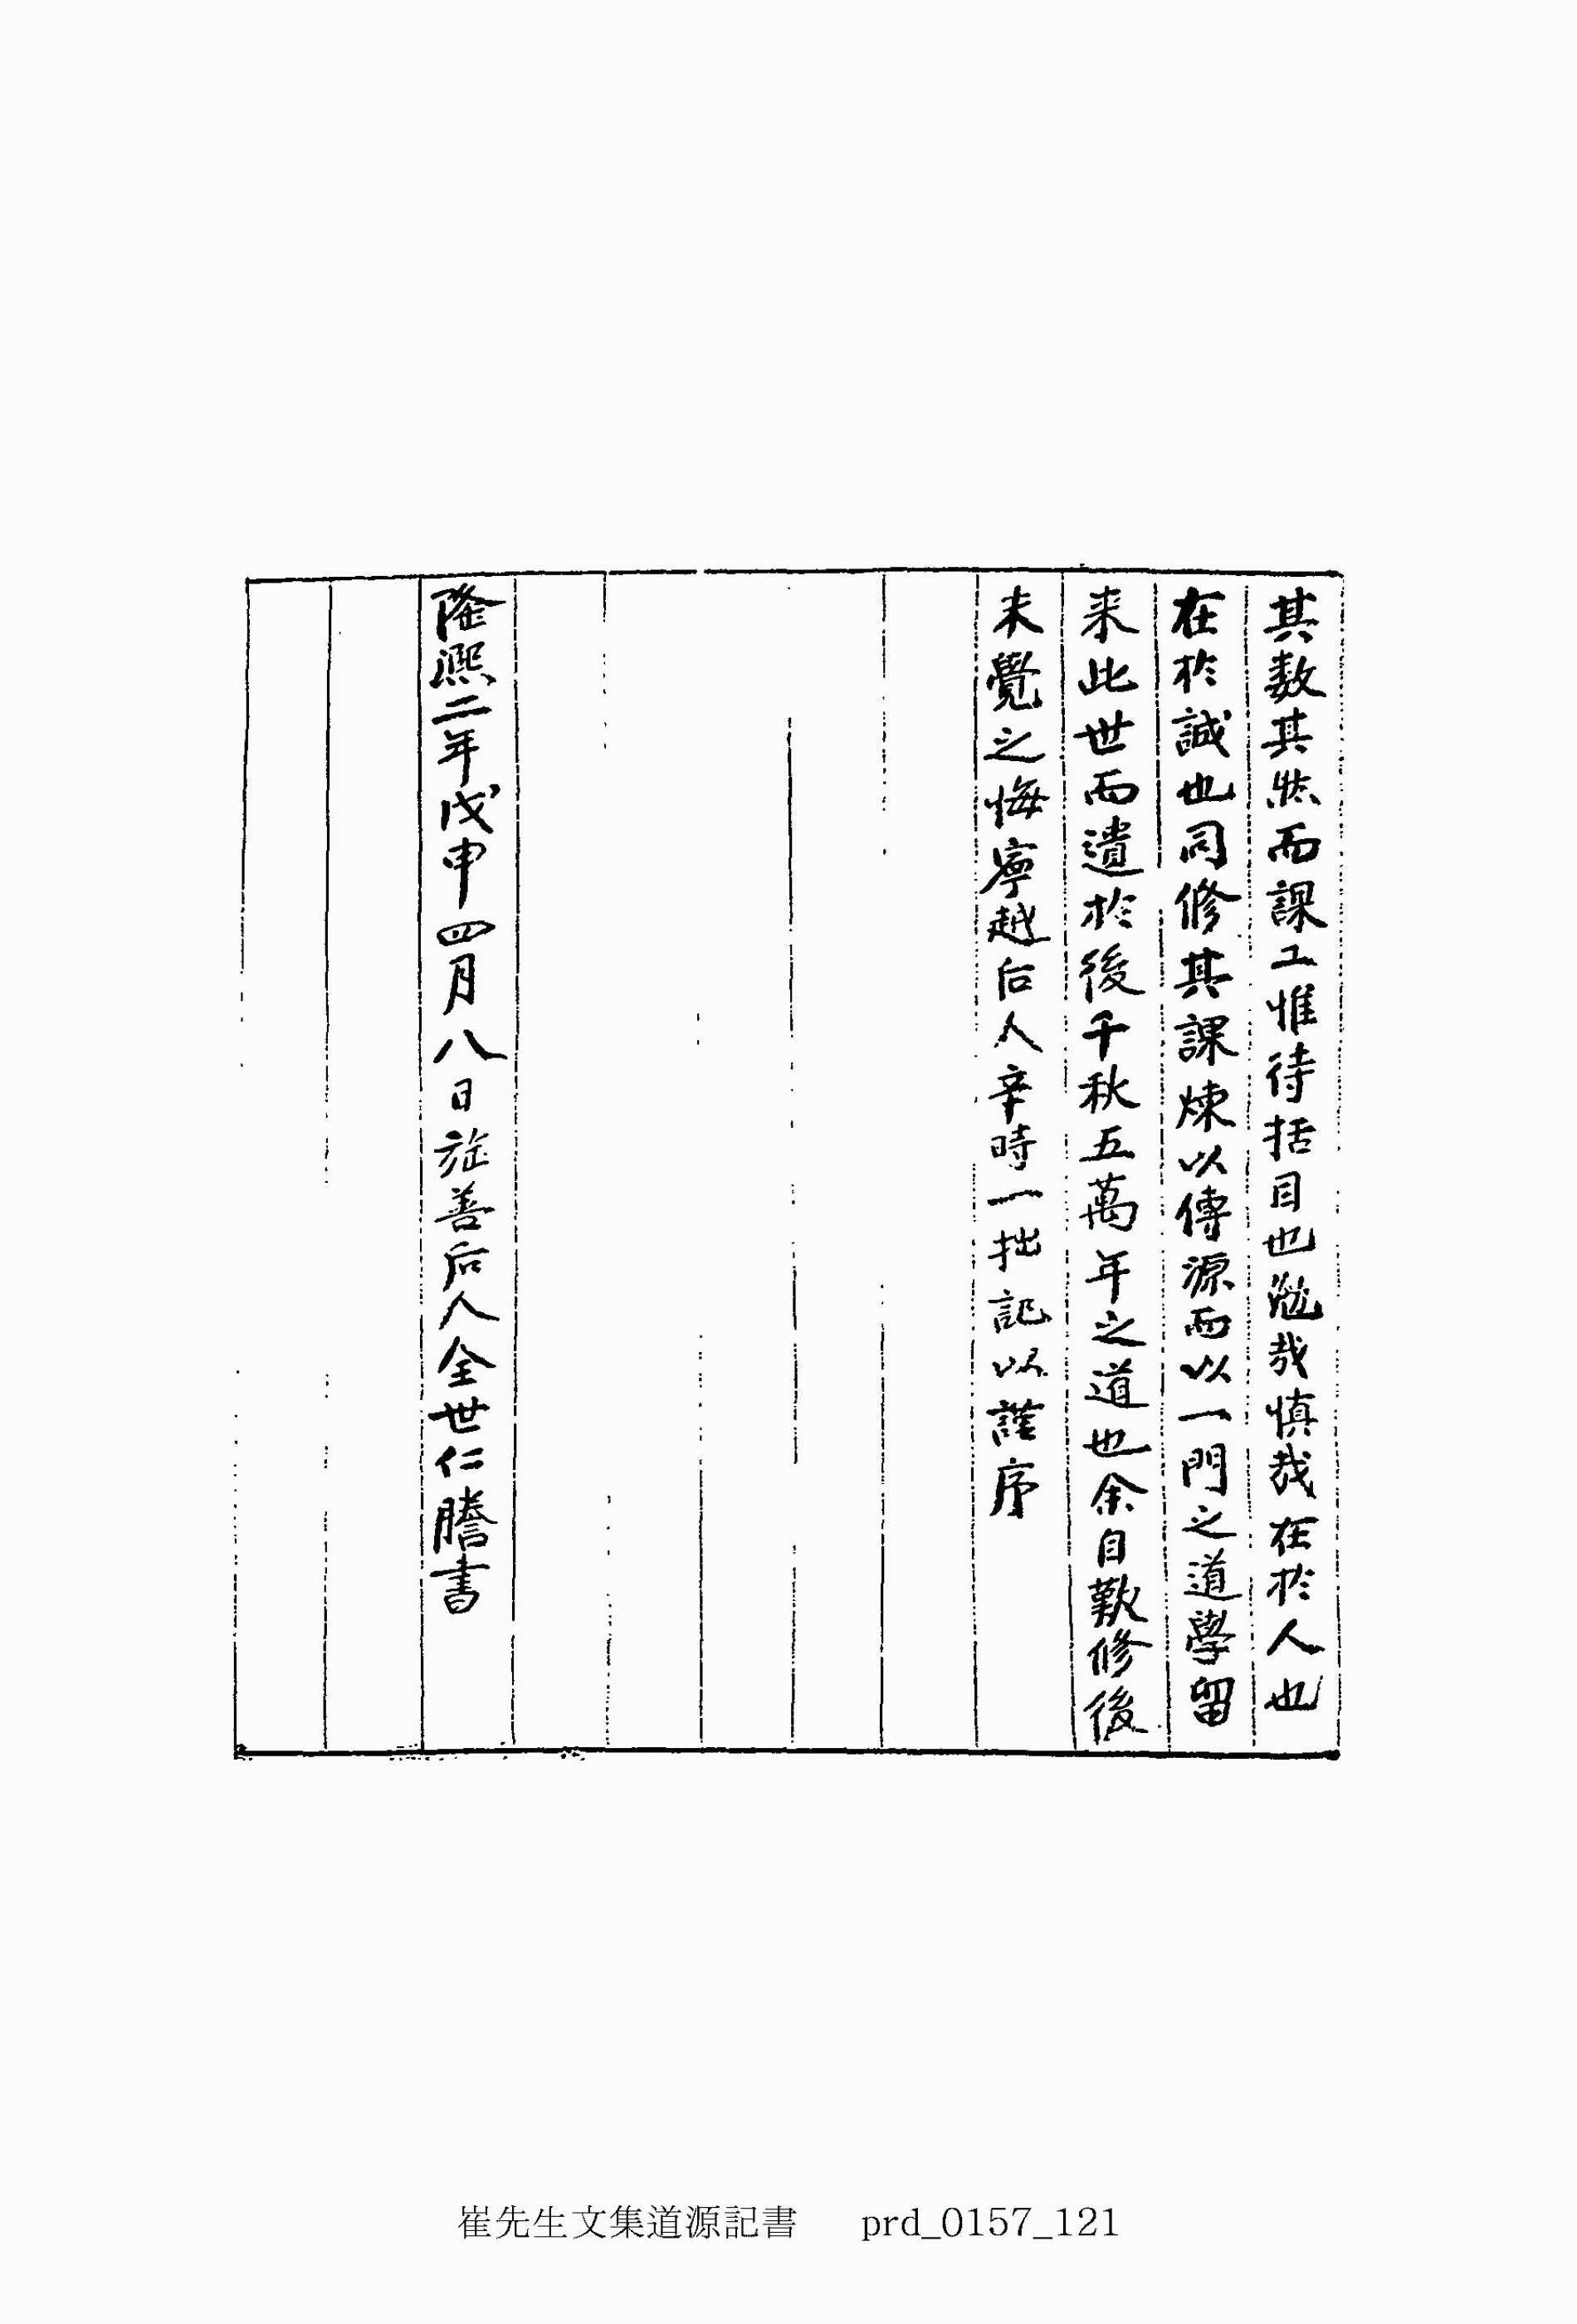 其数其然而課工惟待括目也勉哉慎哉在於人也
在於誠也同修其課煉以傳源而以一門之道學留
来此世而遺於後千秋五萬年之道也余自歎修後
未覺之悔寧越后人辛時一拙記以謹序
隆熙二年戊申四月八日旌善后人全世仁謄書
崔先生文集道源記書 prd_0157_121